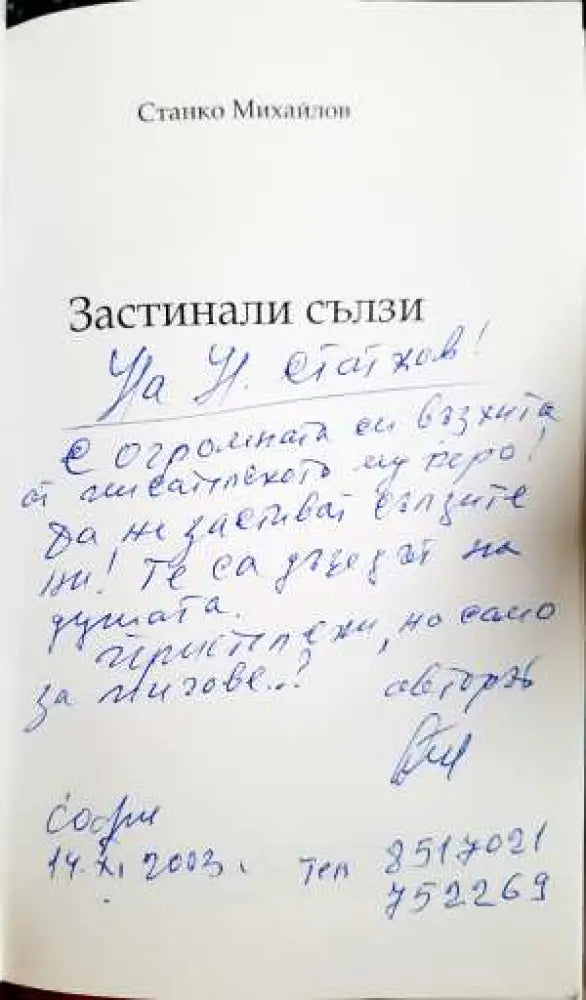 Станко Михайлов
Застинали сълзи
На Н. Статков!
С огромната си възхита
от писателското му перо!
Да не застиват сълзите
ни! Те са дъждът на
душата.
но само
за мигове..?
авторът
София
14.XI 2003 г.
тел 8517021
752269